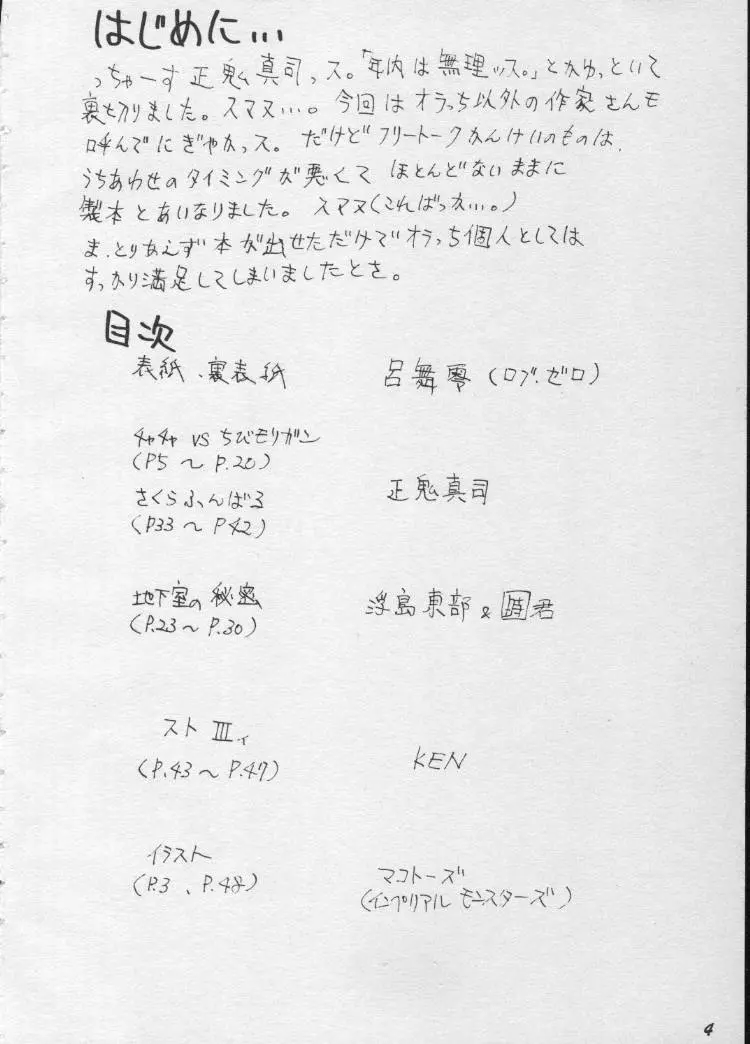 はじめに…
っちゃーす正鬼真司っス。「年内は無理ッス。」とかゆっといて
裏を切りました。スマヌ…。今回はオラっち以外の作家さんも
呼んでにぎやかっス。だけどフリートークかんけいのものは、
うちあわせのタイミングが悪くて ほとんどないままに
製本とあいなりました。スマヌ(こればっか…。)
ま、とりあえず本が出せただけでオラっち個人としては
すっかり満足してしまいましたとさ。
目次
表紙、裏表紙 呂舞零(ロブ・ゼロ)
チャチャ VS ちびモリガン
(P5 〜 P.20)
さくらふんばる
(P33 〜 P42)
正鬼真司
地下室の秘密
(P.23 〜 P.30)
浮島東部 & 時君
スト III
(P.43 〜 P.47)
KEN
イラスト
(P.3 、P.48)
マコトーズ
(インペリアル モンスターズ)
4